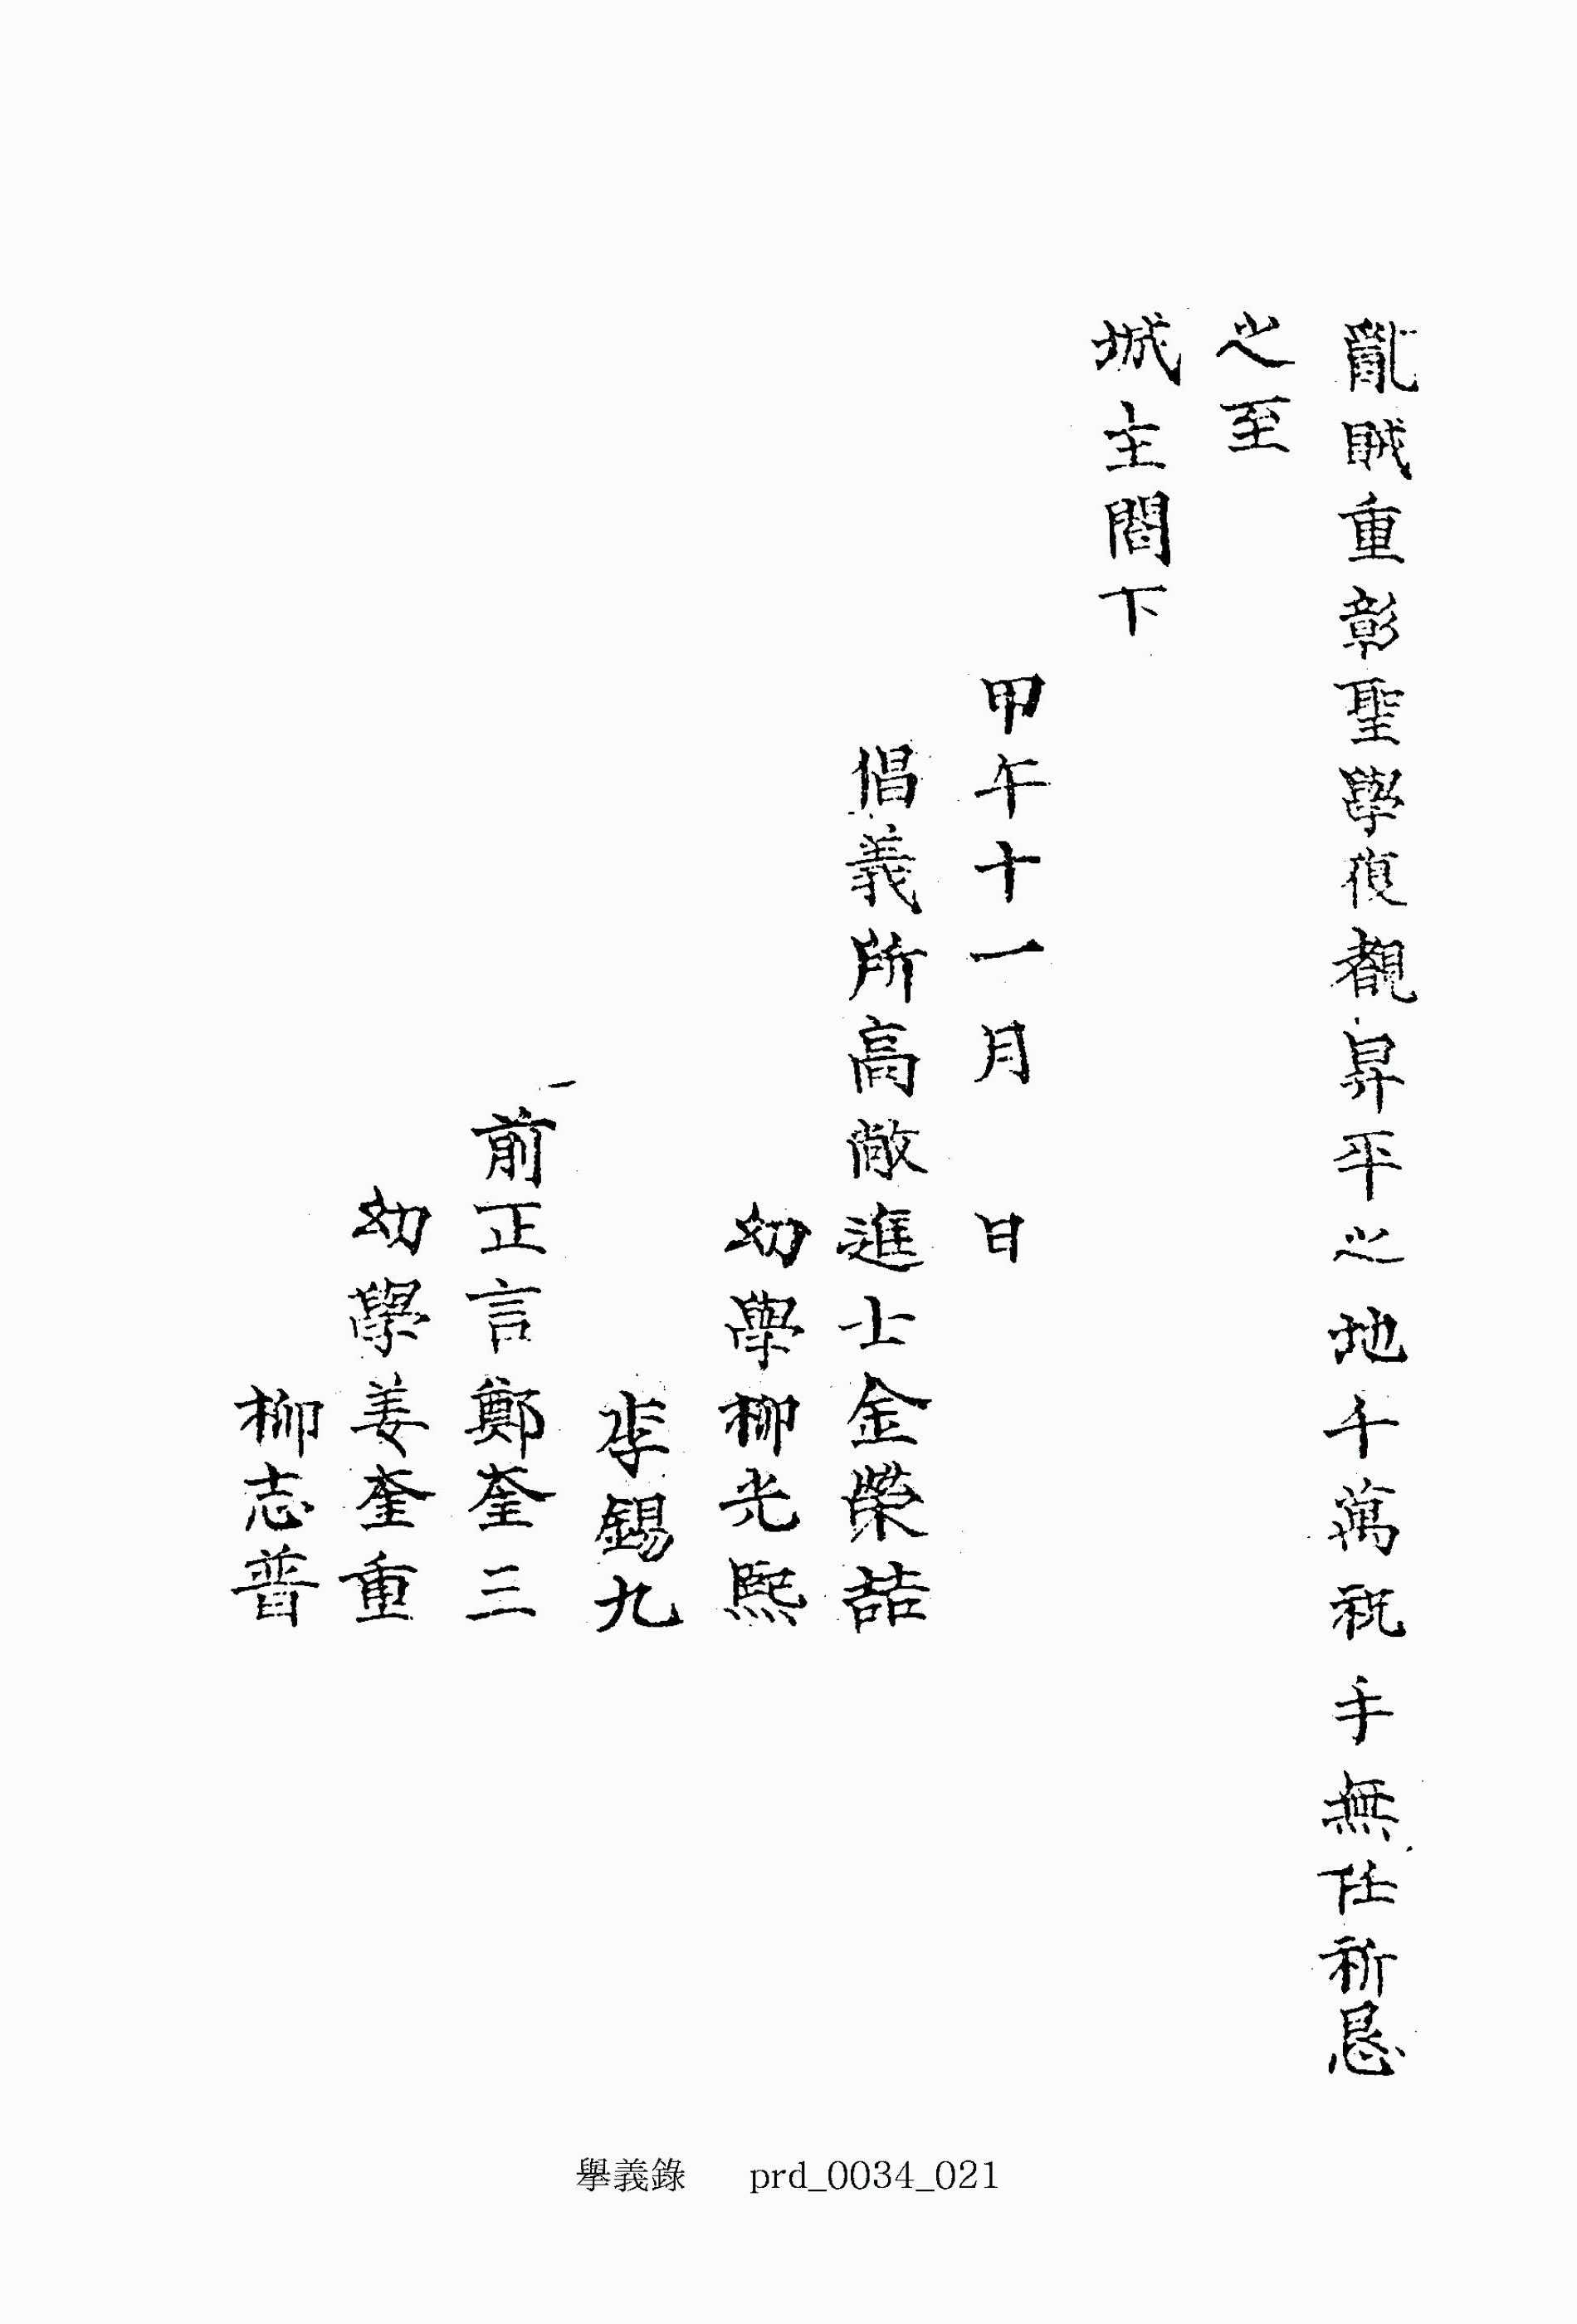 亂賊重彰聖學復覩昇平之地千萬祝手無任祈恳
之至
城主閤下
甲午十一月 日
倡義所高敞進士金榮喆
幼學柳光熙
李錫九
前正言鄭奎三
幼學姜奎重
柳志普
擧義錄 prd_0034_021